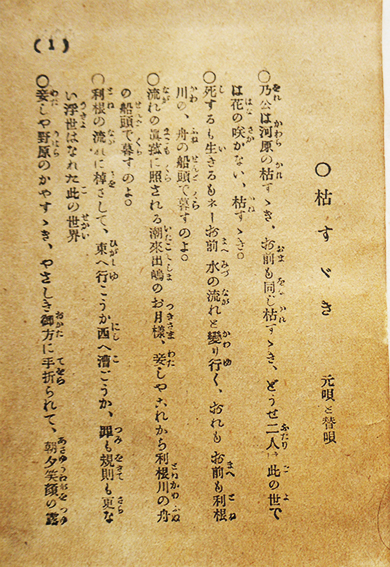 (1)
○枯すゞき 元唄と替唄
○乃公は河原の枯すゝき、お前も同じ枯すゝき、どうせ二人は此の世で
は花の咲かない、枯すゝき。
○死するも生きるもネーお前、水の流れと變り行く、おれもお前も利根
川の、舟の船頭で暮すのよ。
○流れの眞菰に照される潮來出嶋のお月樣、妾しやこれから利根川の舟
の船頭で暮すのよ。
○利根の流れに棹さして、東へ行こうか西へ漕ごうか、罪も規則も更な
い浮世はなれた此の世界
○妾しや野原のかやすゝき、やさしき御方に手折られて、朝夕笑顔の露